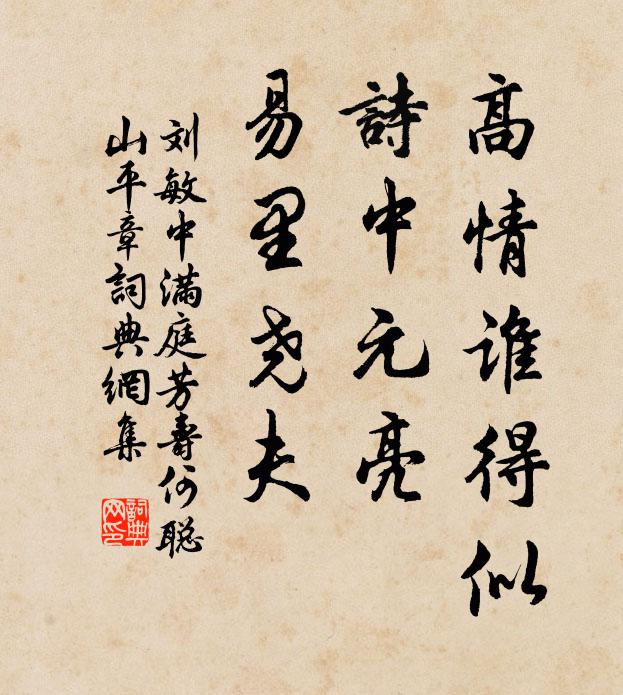 高情谁得似
詩中元亮
易里尧夫
刘敏中满庭芳壽何聪
山平章詞典網集
詞典网印